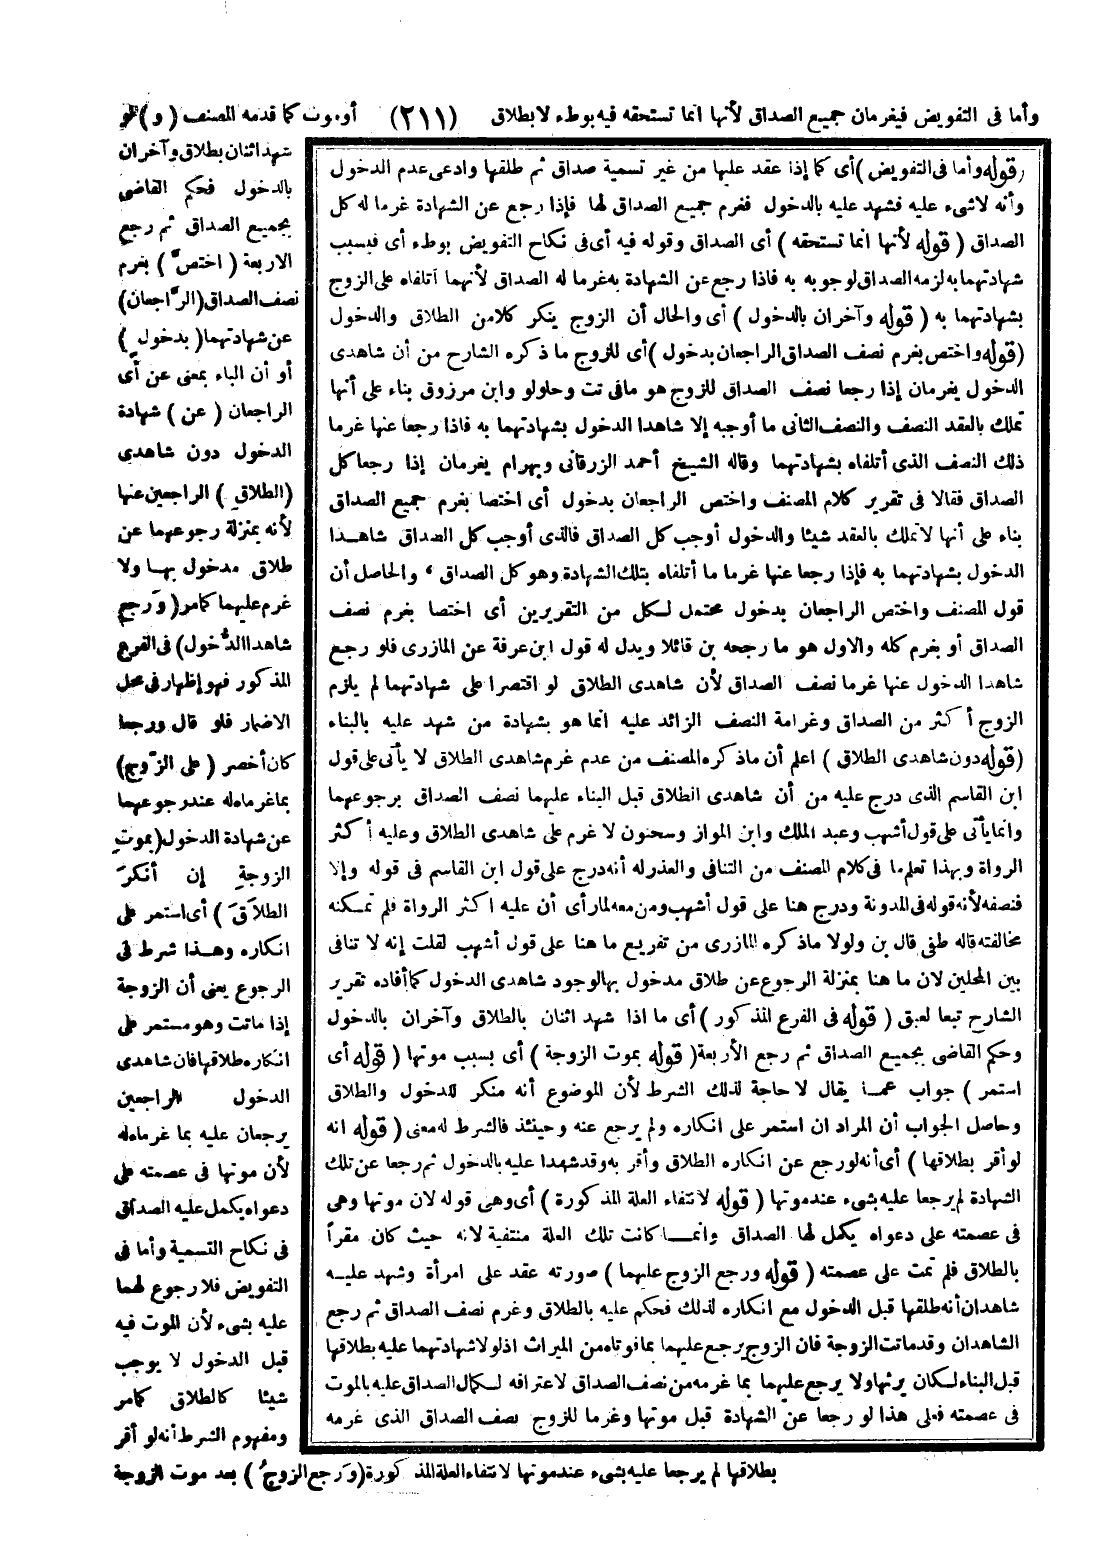 وأما فى التفويض فيغرمان جميع الصداق لأنها انما تستحقه فيه بوطء لا بطلاق (٢١١) أو موت كما قدمه المصنف (و) لو
شهد اثنان بطلاق وآخران
بالدخول فحكم القاضى
بجميع الصداق ثم رجع
الاربعة (اختصَّ) بغرم
نصف الصداق (الرَّاجعان)
عن شهادتهما (بدخولٍ)
أو أن الباء بمعنى عن أى
الراجعان (عن) شهادة
الدخول دون شاهدى
(الطلاقِ) الراجعين عنها
لأنه بمنزلة رجوعهما عن
طلاق مدخول بها ولا
غرم عليهما كما مر (وَرجع
شاهدا الدُّخول) فى الفرع
المذكور فهو إظهار فى محل
الاضمار فلو قال ورجعا
كان أخصر (على الزَّوج)
بما غرماه له عند رجوعهما
عن شهادة الدخول (بموتِ
الزوجةِ إن أنكرَ
الطلاَقَ) أى استمر على
انكاره وهذا شرط فى
الرجوع يعنى أن الزوجة
إذا ماتت وهو مستمر على
انكاره طلاقها فان شاهدى
الدخول الراجعين
يرجعان عليه بما غرماه له
لأن موتها فى عصمته على
دعواه يكمل عليه الصداق
فى نكاح التسمية وأما فى
التفويض فلا رجوع لهما
عليه بشىء لأن الموت فيه
قبل الدخول لا يوجب
شيئا كالطلاق كما مر
ومفهوم الشرط أنه لو أقر
بطلاقها لم يرجعا عليه بشىء عند موتها لانتفاء العلة المذكورة (وَرجع الزوجُ) بعد موت الزوجة
(قوله وأما فى التفويض) أى كما إذا عقد عليها من غير تسمية صداق ثم طلقها وادعى عدم الدخول
وأنه لا شىء عليه فشهد عليه بالدخول فغرم جميع الصداق لها فإذا رجع عن الشهادة غرما له كل
الصداق (قوله لأنها انما تستحقه) أى الصداق وقوله فيه أى فى نكاح التفويض بوطء أى فبسبب
شهادتهما به لزمه الصداق لوجوبه به فاذا رجع عن الشهادة به غرما له الصداق لأنهما أتلفاه على الزوج
بشهادتهما به (قوله وآخران بالدخول) أى والحال أن الزوج ينكر كلا من الطلاق والدخول
(قوله واختص بغرم نصف الصداق الراجعان بدخول) أى للزوج ما ذكره الشارح من أن شاهدى
الدخول يغرمان إذا رجعا نصف الصداق للزوج هو مافى تت وحلولو وابن مرزوق بناء على أنها
تملك بالعقد النصف والنصف الثانى ما أوجبه إلا شاهدا الدخول بشهادتهما به فاذا رجعا عنها غرما
ذلك النصف الذى أتلفاه بشهادتهما وقاله الشيخ أحمد الزرقانى وبهرام يغرمان إذا رجعا كل
الصداق فقالا فى تقرير كلام المصنف واختص الراجعان بدخول أى اختصا بغرم جميع الصداق
بناء على أنها لا تملك بالعقد شيئا والدخول أوجب كل الصداق فالذى أوجب كل الصداق شاهدا
الدخول بشهادتهما به فإذا رجعا عنها غرما ما أتلفاه بتلك الشهادة وهو كل الصداق ، والحاصل أن
قول المصنف واختص الراجعان بدخول محتمل لكل من التقريرين أى اختصا بغرم نصف
الصداق أو بغرم كله والاول هو ما رجحه بن قائلا ويدل له قول ابن عرفة عن المازرى فلو رجع
شاهدا الدخول عنها غرما نصف الصداق لأن شاهدى الطلاق لو اقتصرا على شهادتهما لم يلزم
الزوج أكثر من الصداق وغرامة النصف الزائد عليه انما هو بشهادة من شهد عليه بالبناء
(قوله دون شاهدى الطلاق) اعلم أن ماذكره المصنف من عدم غرم شاهدى الطلاق لا يأتى على قول
ابن القاسم الذى درج عليه من أن شاهدى الطلاق قبل البناء عليهما نصف الصداق برجوعهما
وانما يأتى على قول أشهب وعبد الملك وابن المواز وسحنون لا غرم على شاهدى الطلاق وعليه أكثر
الرواة وبهذا تعلم ما فى كلام المصنف من التنافى والعذر له أنه درج على قول ابن القاسم فى قوله وإلا
فنصفه لأنه قوله فى المدونة ودرج هنا على قول أشهب ومن معه لما رأى أن عليه اكثر الرواة فلم تمكنه
مخالفته قاله طفى قال بن ولولا ماذكره المازرى من تفريع ما هنا على قول أشهب لقلت إنه لا تنافى
بين المحلين لان ما هنا بمنزلة الرجوع عن طلاق مدخول بها لوجود شاهدى الدخول كما أفاده تقرير
الشارح تبعا لعبق (قوله فى الفرع المذكور) أى ما اذا شهد اثنان بالطلاق وآخران بالدخول
وحكم القاضى بجميع الصداق ثم رجع الأربعة (قوله بموت الزوجة) أى بسبب موتها (قوله أى
استمر) جواب عما يقال لا حاجة لذلك الشرط لأن الموضوع أنه منكر للدخول والطلاق
وحاصل الجواب أن المراد ان استمر على انكاره ولم يرجع عنه وحينئذ فالشرط له معنى (قوله انه
لو أقر بطلاقها) أى أنه لو رجع عن انكاره الطلاق وأقر به وقد شهدا عليه بالدخول ثم رجعا عن تلك
الشهادة لم يرجعا عليه بشىء عند موتها (قوله لانتفاء العلة المذكورة) أى وهى قوله لان موتها وهى
فى عصمته على دعواه يكمل لها الصداق وانما كانت تلك العلة منتفية لانه حيث كان مقراً
بالطلاق فلم تمت على عصمته (قوله ورجع الزوج عليهما) صورته عقد على امرأة وشهد عليه
شاهدان أنه طلقها قبل الدخول مع انكاره لذلك فحكم عليه بالطلاق وغرم نصف الصداق ثم رجع
الشاهدان وقد ماتت الزوجة فان الزوج يرجع عليهما بما فوتاه من الميراث اذ لولا شهادتهما عليه بطلاقها
قبل البناء لكان يرثها ولا يرجع عليهما بما غرمه من نصف الصداق لاعترافه لكمال الصداق عليه بالموت
فى عصمته فعلى هذا لو رجعا عن الشهادة قبل موتها وغرما للزوج نصف الصداق الذى غرمه